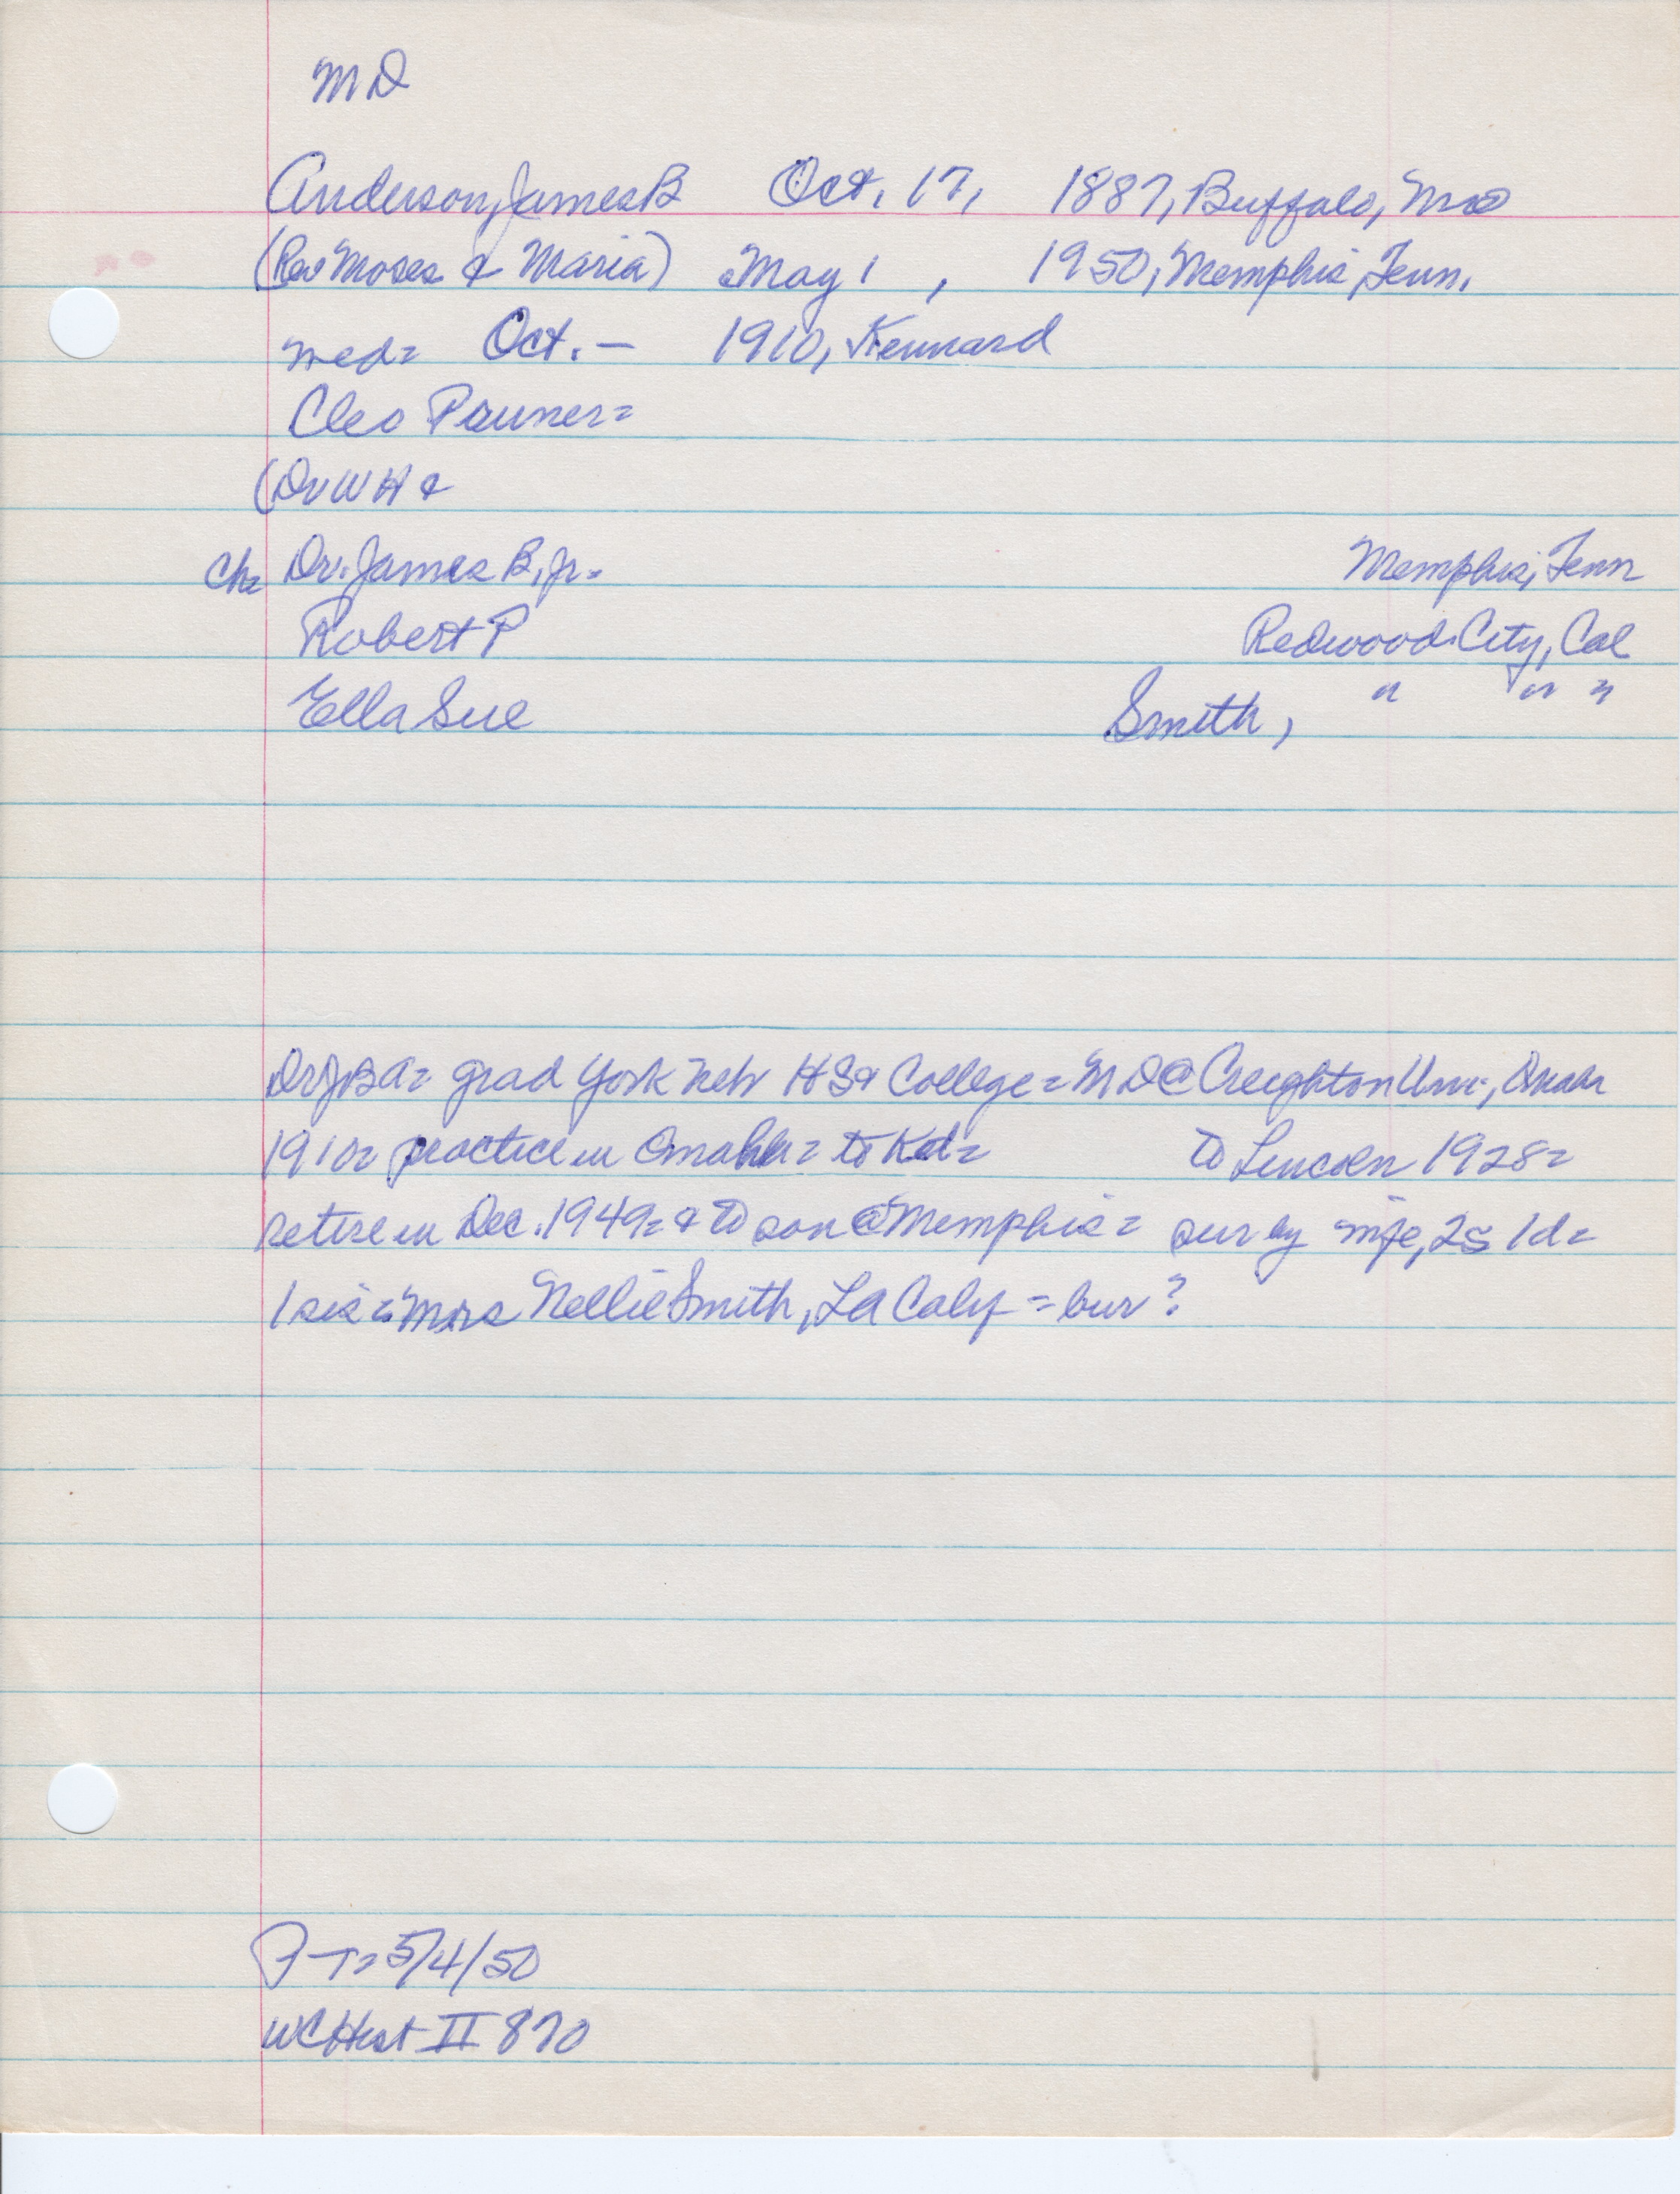 MD
Anderson, James B Oct. 17, 1887, Buffalo, Mo
(Rev Moses & Maria) May 1, 1950, Memphis, Tenn.
med= Oct. - 1910, Kennard
Cleo Pruner=
(Dr W H &
Ch= Dr. James B, Jr. Memphis, Tenn
Robert P Redwood City, Cal
Ella Sue Smith, " " "
Dr JBA= grad York Neb HS & College= MD @ Creighton Univ, Omaha
1910= practice in Omaha= to Kd= to Lincoln 1928=
retire in Dec. 1949= & to son @ Memphis= sur by wife, 2s 1d=
1 sis= Mrs Nellie Smith, La Calif = bur?
P-T= 5/4/50
WCHist II 870